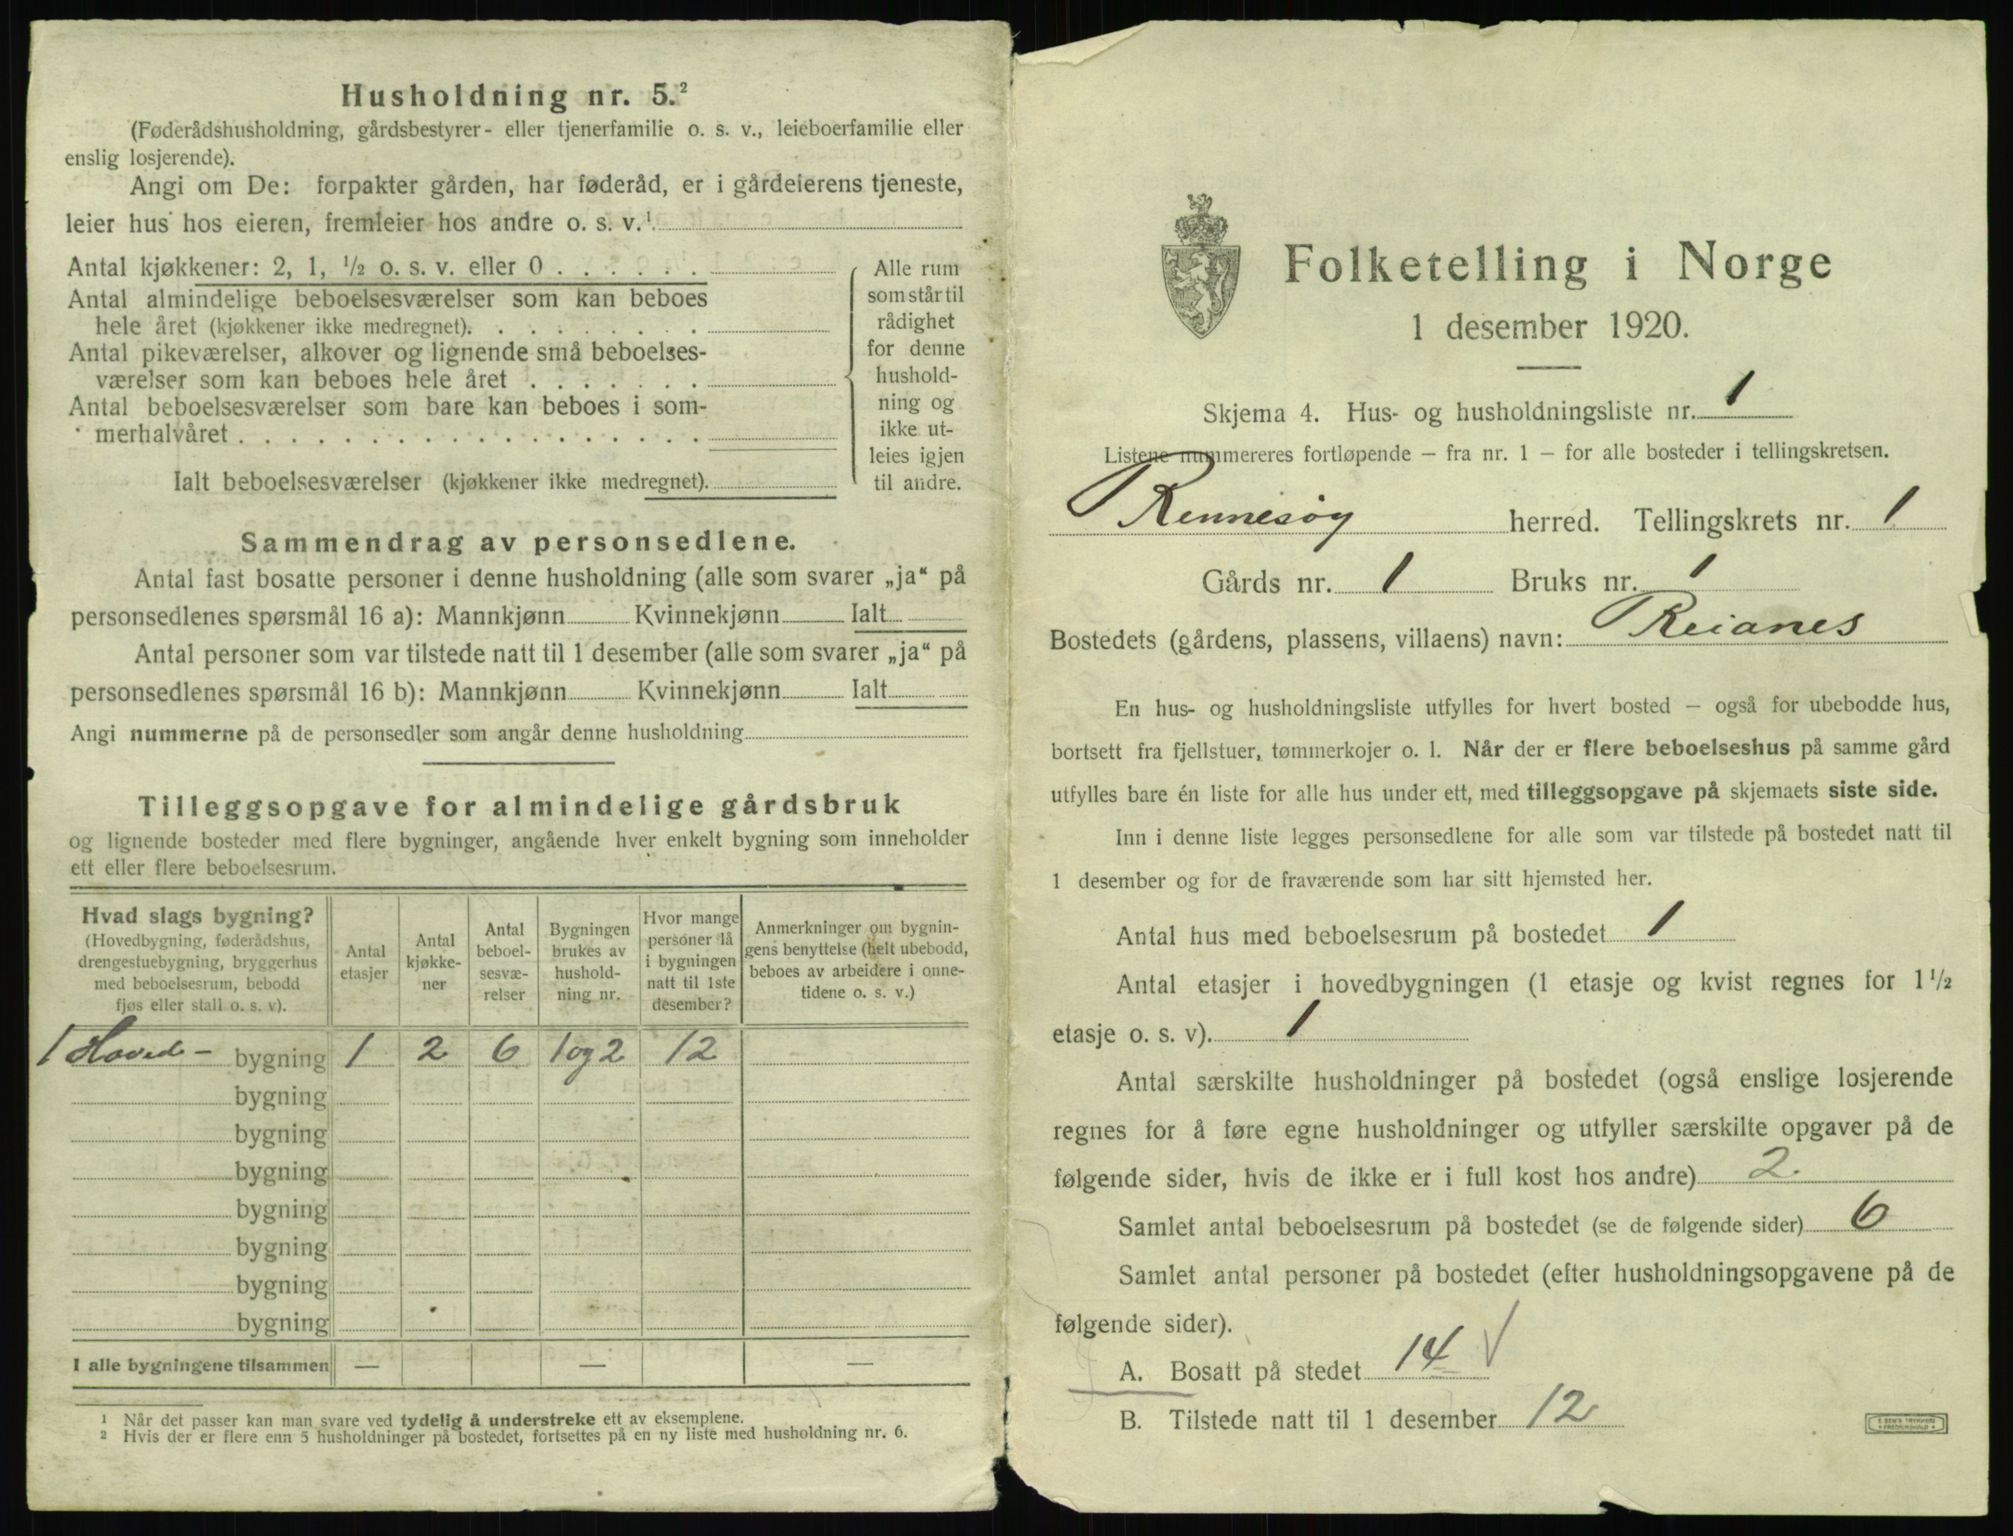 Husholdning nr. 5.²
(Føderådshusholdning, gårdsbestyrer- eller tjenerfamilie o. s. v., leieboerfamilie eller
enslig losjerende).
Angi om De: forpakter gården, har føderåd, er i gårdeierens tjeneste,
leier hus hos eieren, fremleier hos andre o. s. v.¹
Antal kjøkkener: 2, 1, ½ o. s. v. eller 0 . . . . . .
Antal almindelige beboelsesværelser som kan beboes
hele året (kjøkkener ikke medregnet). . . . . . . . .
Antal pikeværelser, alkover og lignende små beboelses-
værelser som kan beboes hele året . . . . . . .
Antal beboelsesværelser som bare kan beboes i som-
merhalvåret . . . . . . . . . . . . . . . . . .
Ialt beboelsesværelser (kjøkkener ikke medregnet).
Alle rum
som står til
rådighet
for denne
hushold-
ning og
ikke ut-
leies igjen
til andre.
Sammendrag av personsedlene.
Antal fast bosatte personer i denne husholdning (alle som svarer „ja“ på
personsedlenes spørsmål 16 a): Mannkjønn Kvinnekjønn Ialt
Antal personer som var tilstede natt til 1 desember (alle som svarer „ja“ på
personsedlenes spørsmål 16 b): Mannkjønn Kvinnekjønn Ialt
Angi nummerne på de personsedler som angår denne husholdning
Tilleggsopgave for almindelige gårdsbruk
og lignende bosteder med flere bygninger, angående hver enkelt bygning som inneholder
ett eller flere beboelsesrum.
Hvad slags bygning?
(Hovedbygning, føderådshus,
drengestuebygning, bryggerhus
med beboelsesrum, bebodd
fjøs eller stall o. s. v).
Antal
etasjer
Antal
kjøkke-
ner
Antal
beboel-
sesvæ-
relser
Bygningen
brukes av
hushold-
ning nr.
Hvor mange
personer lå
i bygningen
natt til 1ste
desember?
Anmerkninger om bygnin-
gens benyttelse (helt ubebodd,
beboes av arbeidere i onne-
tidene o. s. v.)
1 Hoved- bygning 1 2 6 1 og 2 12
bygning
bygning
bygning
bygning
bygning
bygning
bygning
I alle bygningene tilsammen — — —
¹ Når det passer kan man svare ved tydelig å understreke ett av eksemplene.
² Hvis der er flere enn 5 husholdninger på bostedet, fortsettes på en ny liste med husholdning nr. 6.
Folketelling i Norge
1 desember 1920.
Skjema 4. Hus- og husholdningsliste nr. 1
Listene nummereres fortløpende – fra nr. 1 – for alle bosteder i tellingskretsen.
Rennesøy herred. Tellingskrets nr. 1
Gårds nr. 1 Bruks nr. 1
Bostedets (gårdens, plassens, villaens) navn: Reianes
En hus- og husholdningsliste utfylles for hvert bosted – også for ubebodde hus,
bortsett fra fjellstuer, tømmerkojer o. l. Når der er flere beboelseshus på samme gård
utfylles bare én liste for alle hus under ett, med tilleggsopgave på skjemaets siste side.
Inn i denne liste legges personsedlene for alle som var tilstede på bostedet natt til
1 desember og for de fraværende som har sitt hjemsted her.
Antal hus med beboelsesrum på bostedet 1
Antal etasjer i hovedbygningen (1 etasje og kvist regnes for 1½
etasje o. s. v). 1
Antal særskilte husholdninger på bostedet (også enslige losjerende
regnes for å føre egne husholdninger og utfyller særskilte opgaver på de
følgende sider, hvis de ikke er i full kost hos andre) 2
Samlet antal beboelsesrum på bostedet (se de følgende sider) 6
Samlet antal personer på bostedet (efter husholdningsopgavene på de
følgende sider).
A. Bosatt på stedet 14 √
B. Tilstede natt til 1 desember 12